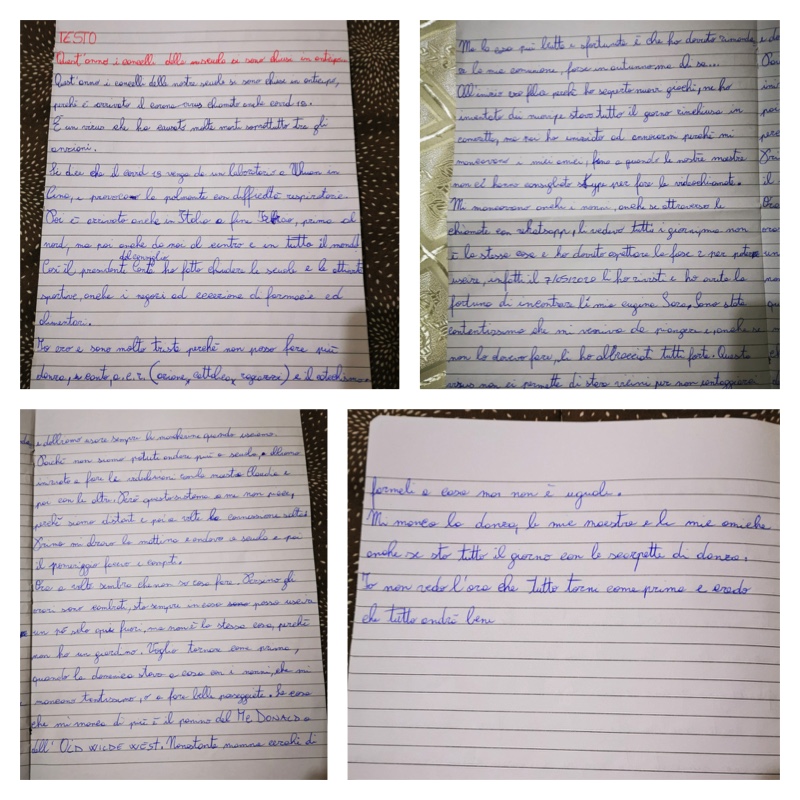 TESTO
Quest'anno i cancelli della mia scuola si sono chiusi in anticipo.
Quest'anno i cancelli della nostra scuola si sono chiusi in anticipo,
perché è arrivato il corona virus chiamato anche covid 19.
È un virus che ha causato molte morti soprattutto tra gli
anziani.
Si dice che il covid 19 venga da un laboratorio a Whuan in
Cina, e provoca la polmonite con difficoltà respiratorie.
Poi è arrivato anche in Italia a fine prima al
nord, ma poi anche da noi al centro e in tutto il mondo
del consiglio
Così il presidente Conte ha fatto chiudere le scuole e le attività
sportive, anche i negozi ad eccezione di farmacie ed
alimentari.
Io ero e sono molto triste perché non posso fare più
danza, canto, a.c.r. (azione, cattolica, ragazzi) e il catechismo.
Ma la cosa più brutta e sfortunata è che ho dovuto rimanda
re la mia comunione, forse in autunno ma si sa...
All'inizio ero felice perché ho scoperto nuovi giochi, ne ho
inventati da morire stavo tutto il giorno rinchiusa in
cameretta, ma poi ho iniziato ad annoiarmi perché mi
mancavano i miei amici, fino a quando le nostre maestre
non ci hanno consigliato Skype per fare le videochiamate.
Mi mancavano anche i nonni, anche se attraverso le
chiamate con whatsapp, li vedevo tutti i giorni, ma non
è la stessa cosa e ho dovuto aspettare la fase 2 per poter
uscire, infatti il 7/05/2020 li ho rivisti e ho avuto la
fortuna di incontrare lì mia cugina Sara. Sono stata
contentissima che mi veniva da piangere e, anche se
non lo dovevo fare, li ho abbracciati tutti forte. Questo
virus non ci permette di stare vicini per non contagiarci
e dobbiamo usare sempre la mascherina quando usciamo.
Poiché non siamo potuti andare più a scuola, abbiamo
iniziato a fare le videolezioni con la maestra Claudia e
poi con le altre. Però questo sistema a me non piace,
perché siamo distanti e poi a volte la connessione salta.
Prima mi alzavo la mattina e andavo a scuola e poi
il pomeriggio facevo i compiti.
Ora a volte sembra che non so cosa fare. Persino gli
orari sono cambiati, sto sempre in casa posso uscire
un pò solo qua fuori, ma non è la stessa cosa, perché
non ho un giardino. Voglio tornare come prima,
quando la domenica stavo a casa con i nonni, che mi
mancano tantissimo, o a fare belle passeggiate. La cosa
che mi manca di più è il panino del Mc DONALD o
dell' OLD WILDE WEST. Nonostante mamma cerchi di
farmeli a casa ma non è uguale.
Mi manca la danza, le mie maestre e le mie amiche
anche se sto tutto il giorno con le scarpette di danza.
Io non vedo l'ora che tutto torni come prima e credo
che tutto andrà bene